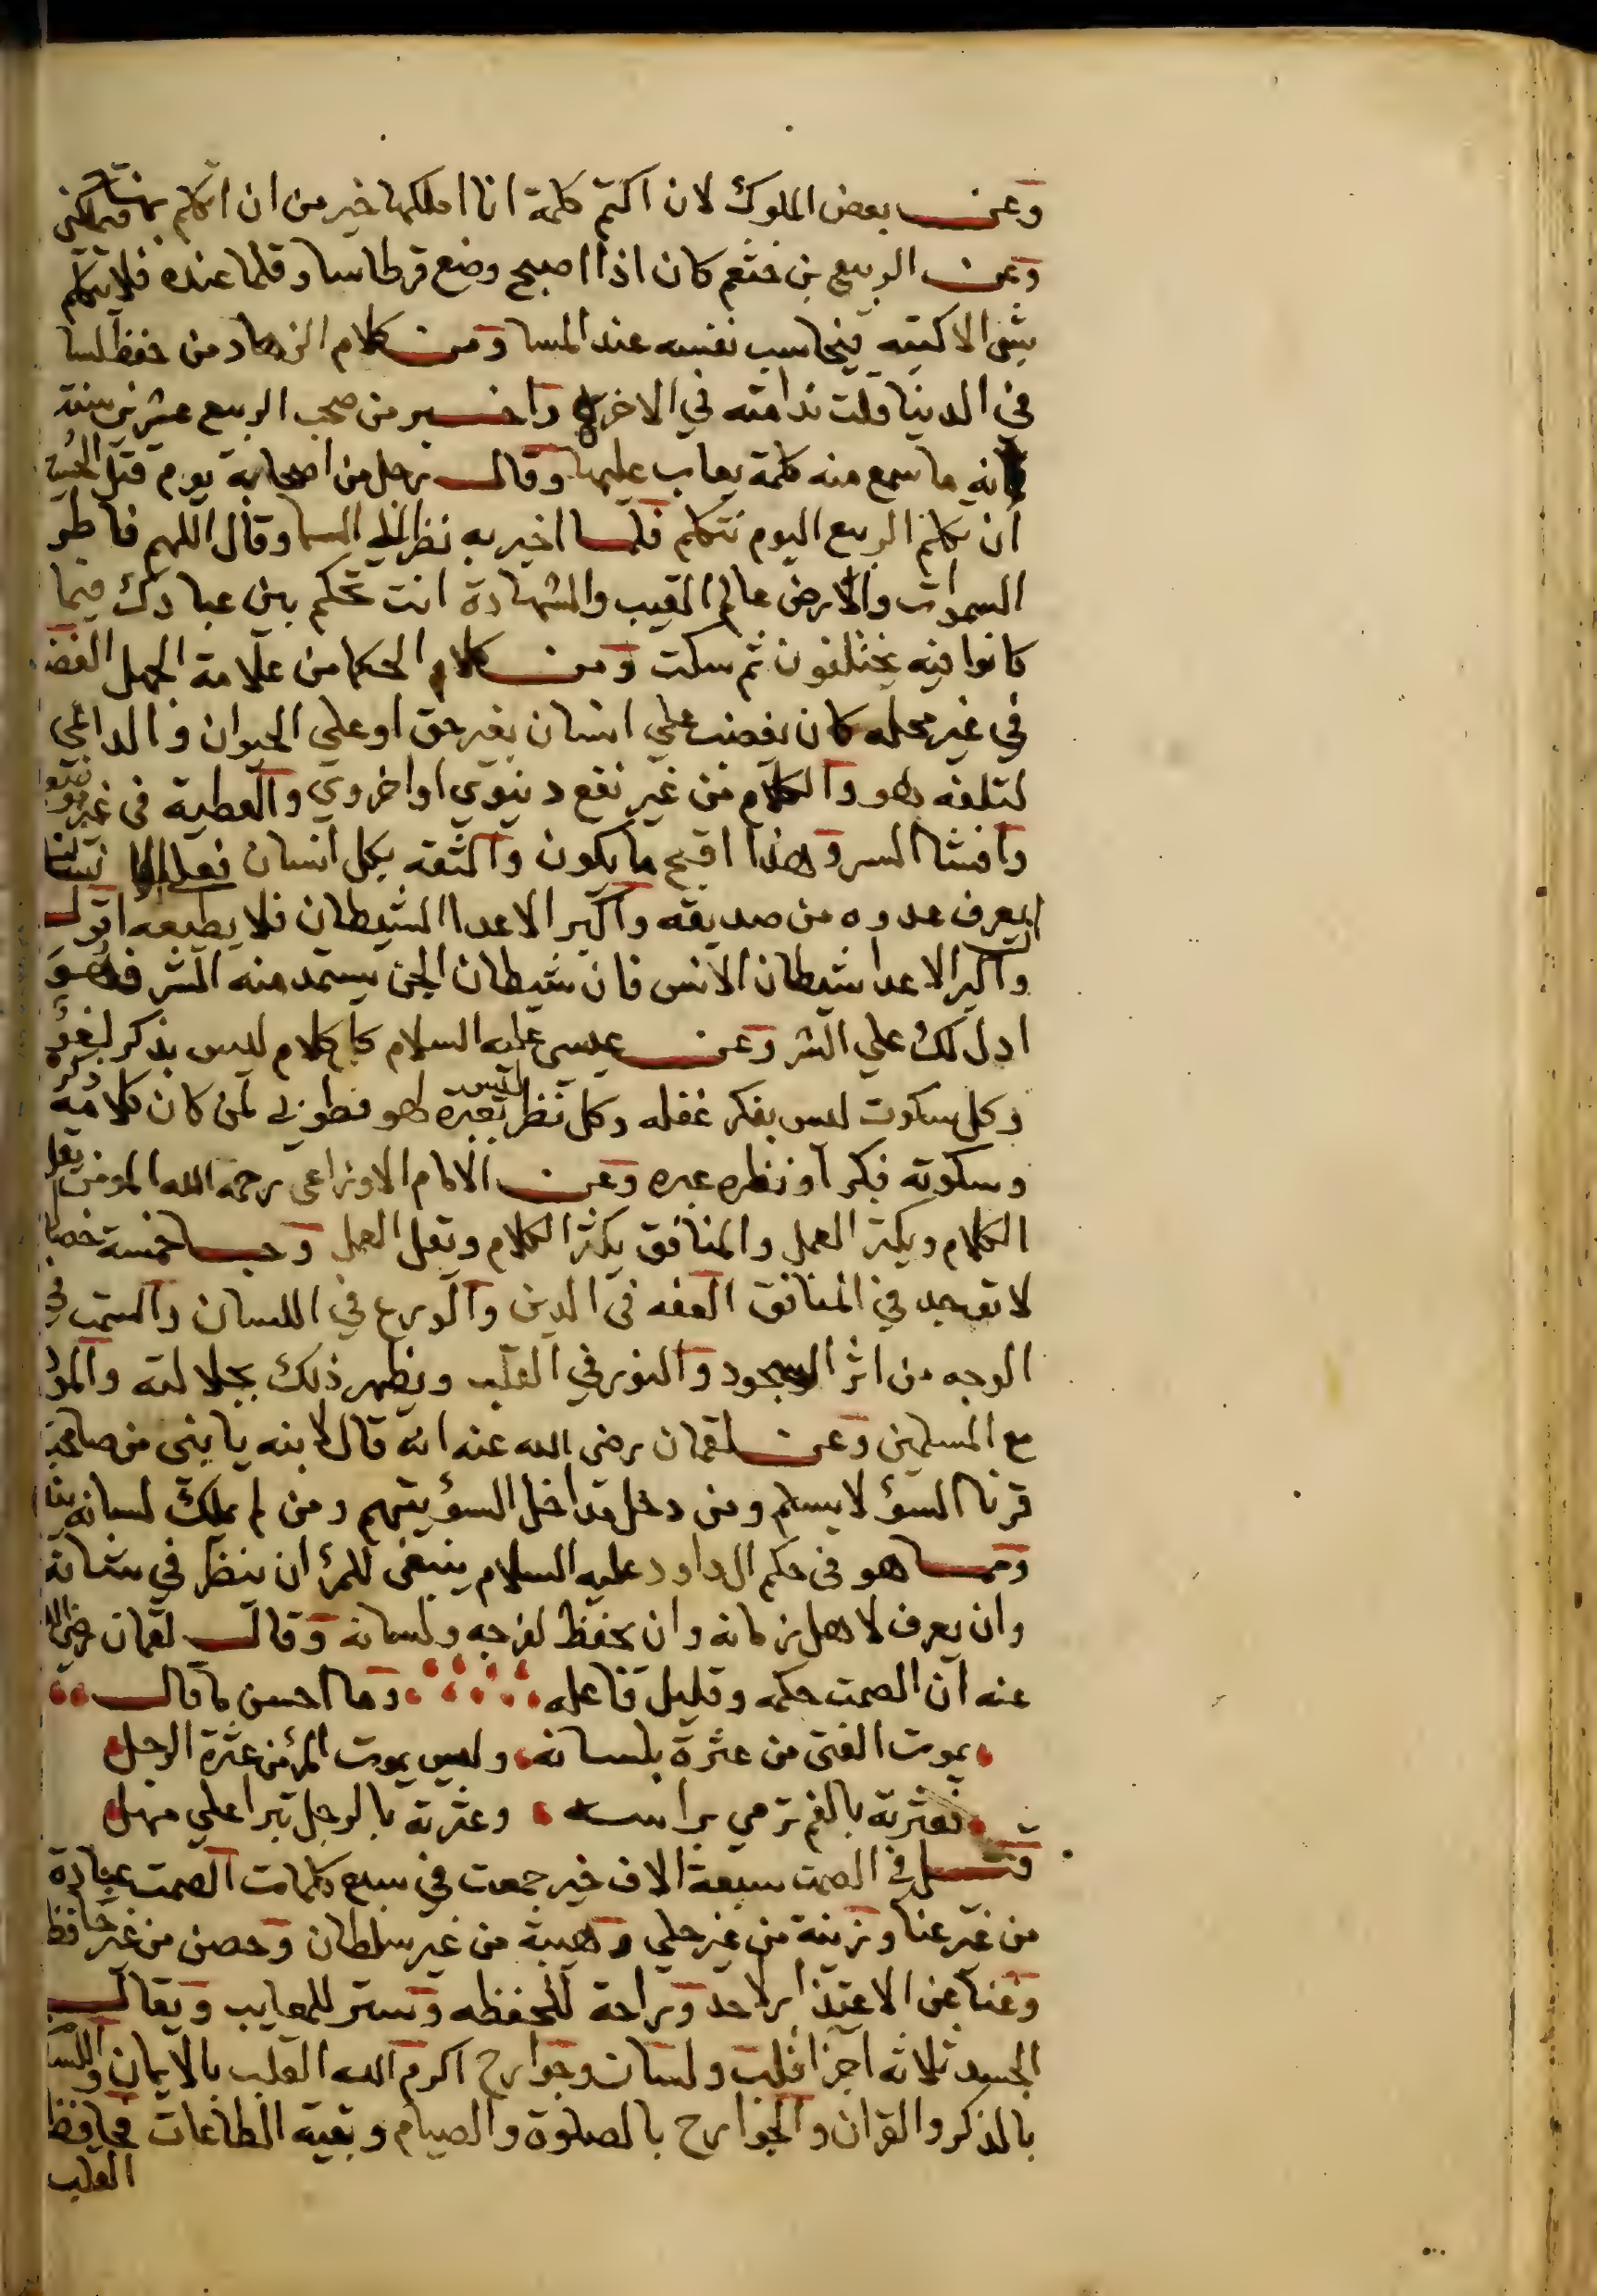 وعن بعض الملوك لان اكتم كلمة انا املكها خير من ان اتكلم بها فتملكني
وعن الربيع بن خثعم كان اذا اصبح وضع قرطاسا وقلما عنده فلا يتكلم
بشي الا كتبه فيحاسب نفسه عند المسا ومن كلام الزهاد من حفظ لسا
في الدنيا قلت ندامته في الاخرة واخبر من صحب الربيع عشرين سنة
انه ما سمع منه كلمة يعاب عليها وقال رجل من اصحابه يوم قتل الحسين
ان تكلم الربيع اليوم تتكلم فلما اخبر به نظر الي السما وقال اللهم فاطر
السموات والارض عالم الغيب والشهادة انت تحكم بين عبادك فيما
كانوا فيه يختلفون ثم سكت ومن كلام الحكما من علامة الجهل الغضب
في غير محله كان يغضب علي انسان بغير حق او علي الحيوان والداعي
لتلفه وهو والكلام من غير نفع دنيوي او اخروي والعطية في غير
وافشا السر وهذا اقبح ما يكون والثقه بكل انسان
ليعرف عدوه من صديقه واكبر الاعدا الشيطان فلا يطيعه اقول
واكبر الاعدا شيطان الانس فان شيطان الجن يستمد منه الشر فهو
ادل لك علي الشر وعن عيسى عليه السلام كل كلام ليس بذكر لغو
وكل سكوت ليس بفكر غفله وكل نظر ليس بعبرة لهو فطوبي لمن كان كلامه ذكره
وسكوته فكر او نظره عبره وعن الامام الاوزاعي رحمه الله المومن يقل
الكلام ويكثر العمل والمنافق يكثر الكلام ويقل العمل وجا خمسة خصا
لا توجد في المنافق الفقه في الدين والورع في اللسان والسمت في
الوجه من اثر السجود والنور في القلب ويظهر ذلك بجلالته والمود
مع المسلمين وعن لقمان رضي الله عنه انه قال لابنه يا بني من صاحب
قرنا السؤ لا يسلم ومن دخل مداخل السؤ يتهم ومن لم يملك لسانه يندم
ومما هو في حكم ال داود عليه السلام ينبغي للمرؤ ان ينظر في شانه
وان يعرف لاهل زمانه وان يحفظ لفرجه ولسانه وقال لقمان رضي الله
عنه ان الصمت حكمه وقليل فاعله وما احسن ما قال
يموت الفتى من عثرة بلسانه وليس يموت المرؤ من عثرة الرجل
فعثرته بالفم ترمي براسه وعثرته بالرجل تبرا علي مهل
قيل في الصمت سبعة الاف خير جمعت في سبع كلمات الصمت عبادة
من غير عنا وزينة من غير حلي وهيبة من غير سلطان وحصن من غير حافظ
وغنا عن الاعتذار لاحد وراحة للحفظه وستر للمعايب ويقال
الجسد ثلاثه اجزا قلب ولسان وجوارح اكرم الله القلب بالايمان واللسا
بالذكر والقران والجوارح بالصلوة والصيام وبقية الطاعات فحافظ
القلب